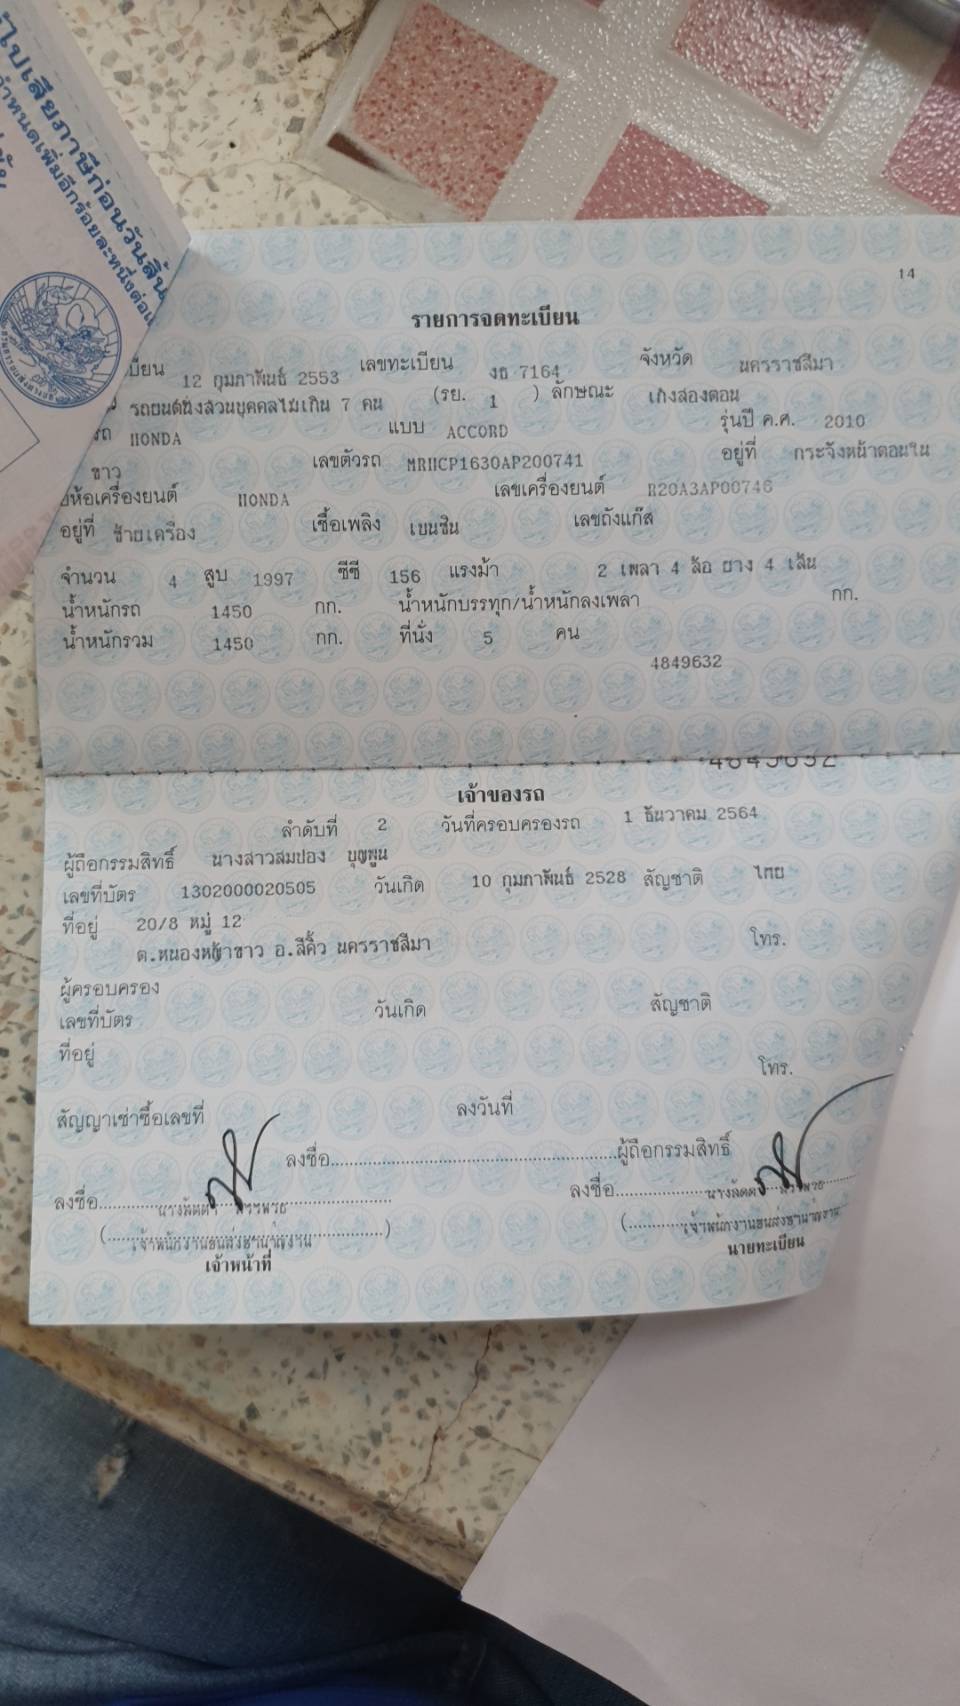 ไปเสียภาษีก่อนวันสิ้น
กำหนดเพิ่มอีกร้อยละหนึ่งต่อเ
14
รายการจดทะเบียน
เบียน 12 กุมภาพันธ์ 2553 เลขทะเบียน งธ 7164 จังหวัด นครราชสีมา
รถยนต์นั่งส่วนบุคคลไม่เกิน 7 คน (รย. 1 ) ลักษณะ เก๋งสองตอน
รถ HONDA แบบ ACCORD รุ่นปี ค.ศ. 2010
ขาว เลขตัวรถ MRHCP1630AP200741 อยู่ที่ กระจังหน้าตอนใน
ยี่ห้อเครื่องยนต์ HONDA เลขเครื่องยนต์ R20A3AP00746
อยู่ที่ ซ้ายเครื่อง เชื้อเพลิง เบนซิน เลขถังแก๊ส
จำนวน 4 สูบ 1997 ซีซี 156 แรงม้า 2 เพลา 4 ล้อ ยาง 4 เส้น
น้ำหนักรถ 1450 กก. น้ำหนักบรรทุก/น้ำหนักลงเพลา กก.
น้ำหนักรวม 1450 กก. ที่นั่ง 5 คน
4849632
4849632
เจ้าของรถ
ลำดับที่ 2 วันที่ครอบครองรถ 1 ธันวาคม 2564
ผู้ถือกรรมสิทธิ์ นางสาวสมปอง บุญพูน
เลขที่บัตร 1302000020505 วันเกิด 10 กุมภาพันธ์ 2528 สัญชาติ ไทย
ที่อยู่ 20/8 หมู่ 12
ต.หนองหญ้าขาว อ.สีคิ้ว นครราชสีมา โทร.
ผู้ครอบครอง
เลขที่บัตร วันเกิด สัญชาติ
ที่อยู่
โทร.
สัญญาเช่าซื้อเลขที่ ลงวันที่
ลงชื่อ ผู้ถือกรรมสิทธิ์
ลงชื่อ ลงชื่อ
เจ้าหน้าที่ นายทะเบียน